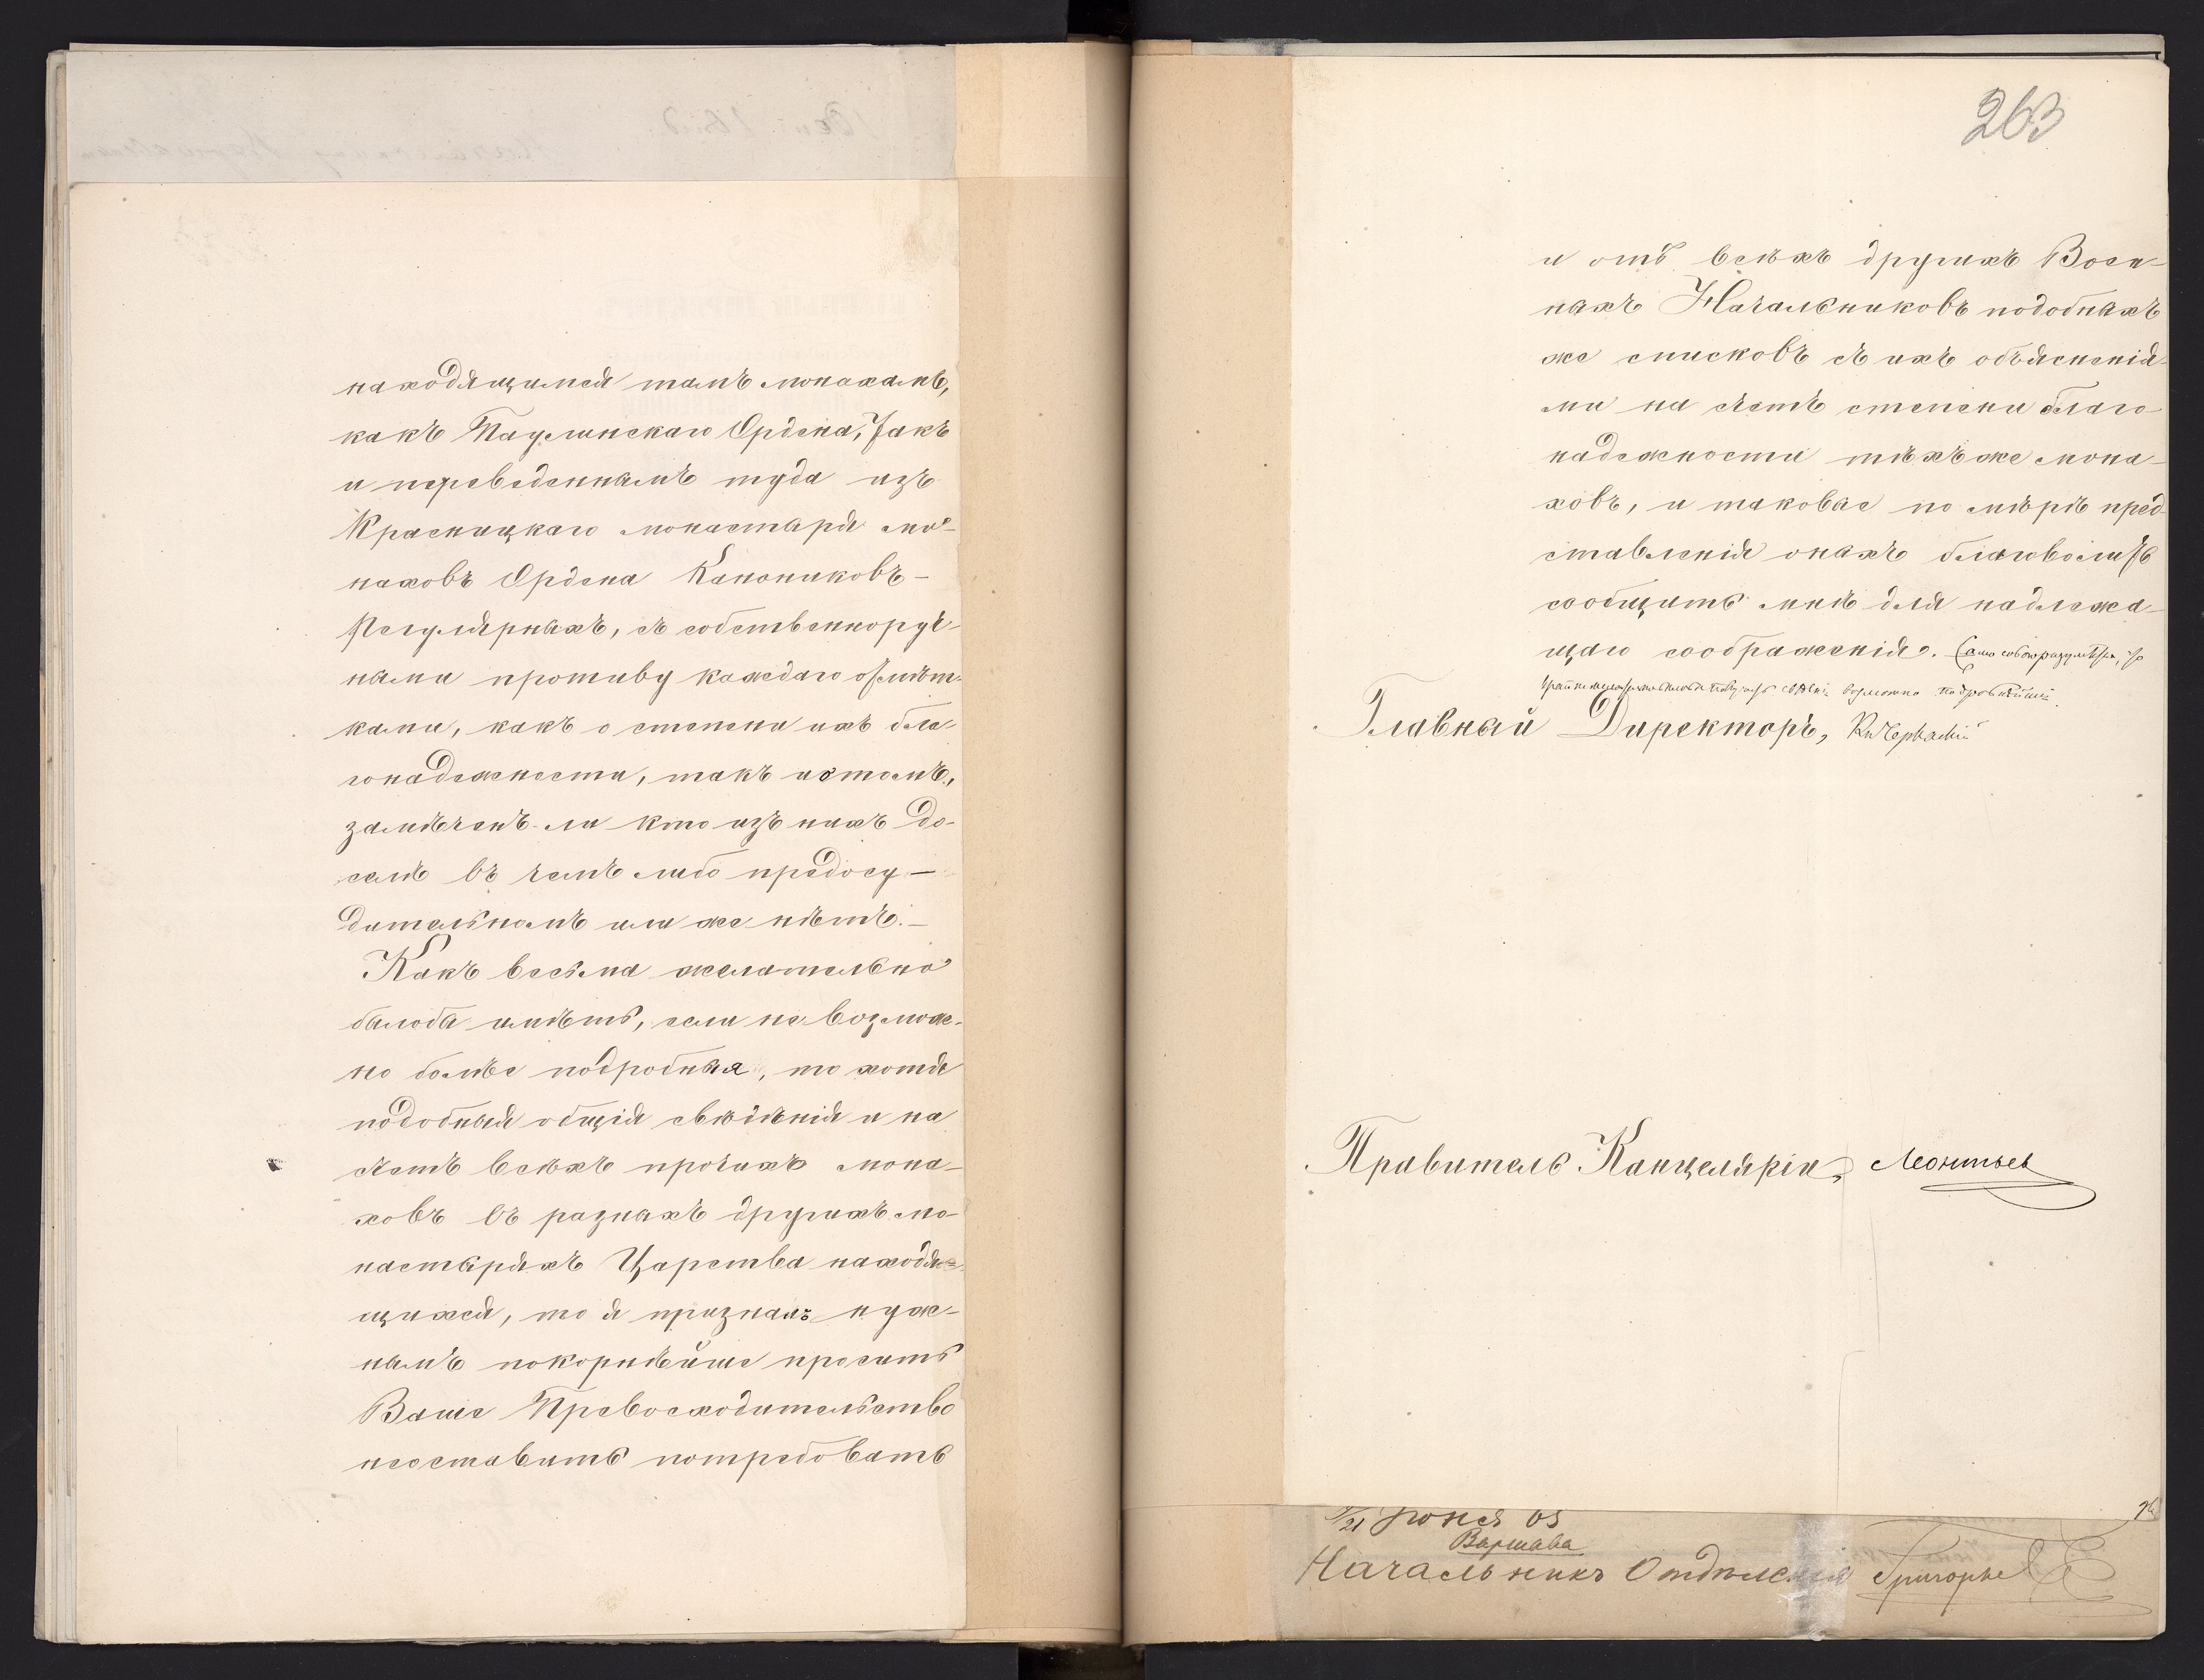 находящимся тамъ монахамъ,
какъ Паулинскаго Ордена, такъ
и переведеннымъ туда изъ
Красницкаго монастыря мо-
наховъ Ордена Канониковъ-
Регулярныхъ, съ собственноруч-
ными противу каждаго отмѣт-
ками, какъ о степени ихъ бла-
гонадежности, такъ и о томъ,
замѣченъ-ли кто изъ нихъ до-
селѣ въ чемъ либо предосу-
дительномъ или же нѣтъ.-
Какъ весьма желательно
было бы имѣть, если не возмож-
но болѣе подробныя, то хотя
подобныя общія свѣдѣнія и на
счетъ всѣхъ прочихъ мона-
ховъ въ разныхъ другихъ мо-
настыряхъ Царства находя-
щихся, то я призналъ нуж-
нымъ покорнѣйше просить
Ваше Превосходительство
неоставить потребовать
263
и отъ всѣхъ другихъ Воен-
ныхъ Начальниковъ подобныхъ
же списковъ съ ихъ объясненія-
ми на счетъ степени благо-
надежности тѣхъ же мона-
ховъ, и таковые по мѣрѣ пред-
ставленія оныхъ благоволить
сообщить мнѣ для надлежа-
щаго соображенія. Само собою разумѣется, что
крайне желательно было бы получить свѣдѣнія возможно подробнѣйшія.
Главный Директоръ, Кн. Черкасскій
Правитель Канцеляріи, Леонтьев
/21 Іюня 65
Варшава
Начальникъ Отдѣленія Григорьев